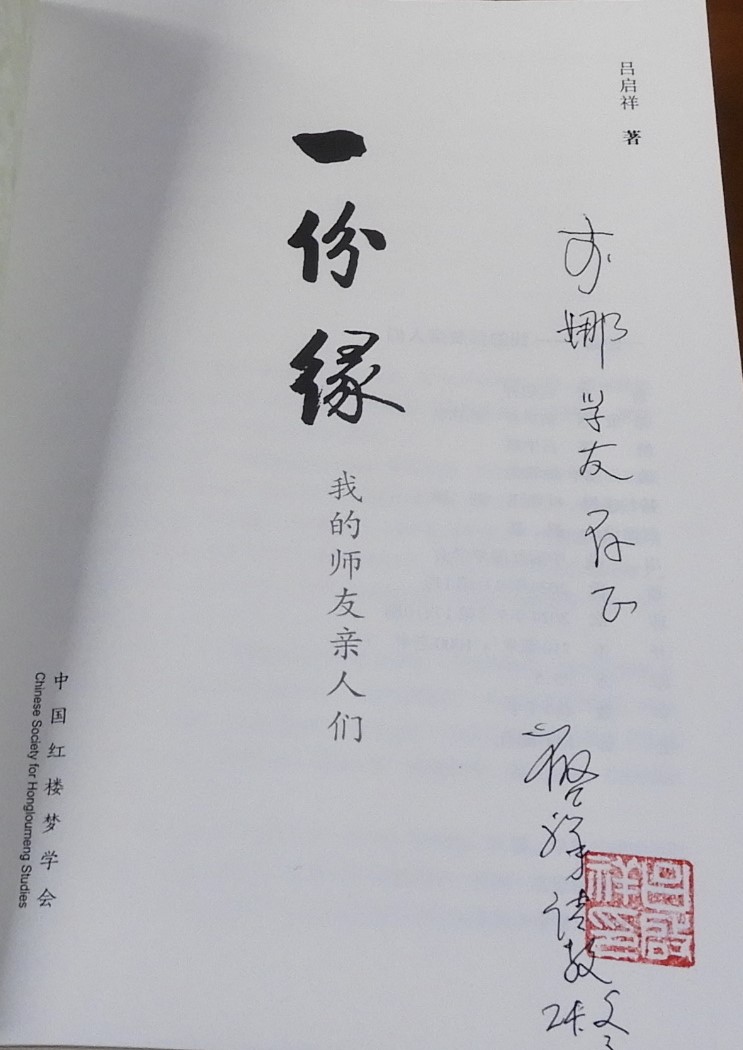 吕启祥 著
一份缘
我的师友亲人们
中国红楼梦学会
Chinese Society for Hongloumeng Studies
亦娜学友存正
启祥请教
吕啟祥印